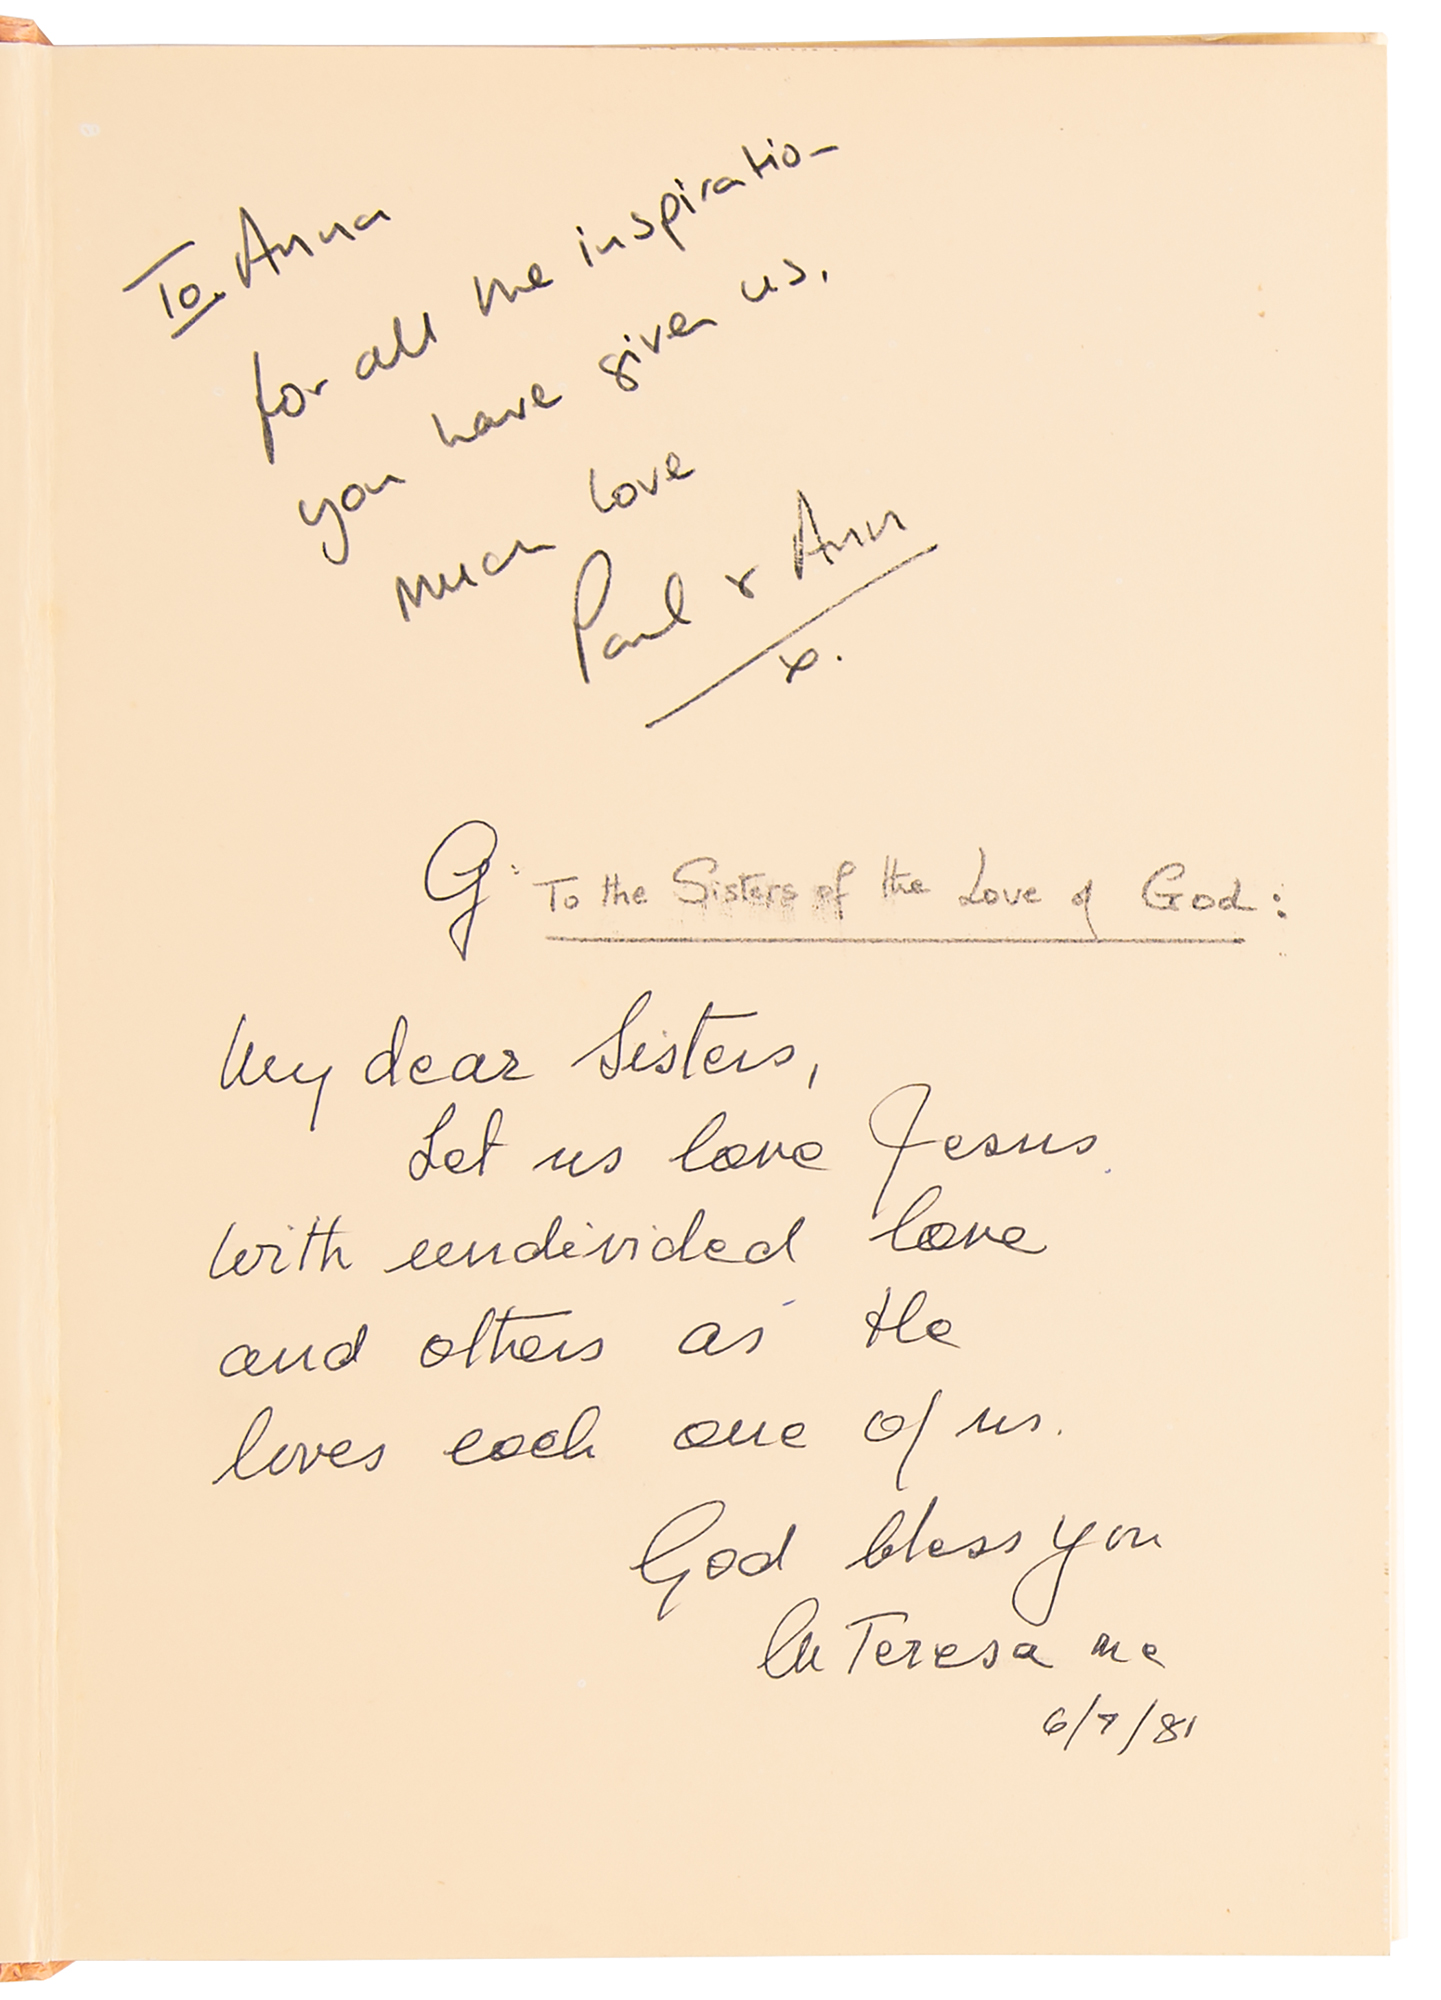 To Anna
for all the inspiration
you have given us.
Much love
Paul & Ann
x.
G: To the Sisters of the Love of God:
My dear Sisters,
Let us love Jesus
with undivided love
and others as He
loves each one of us.
God bless you
M Teresa mc
6/7/81